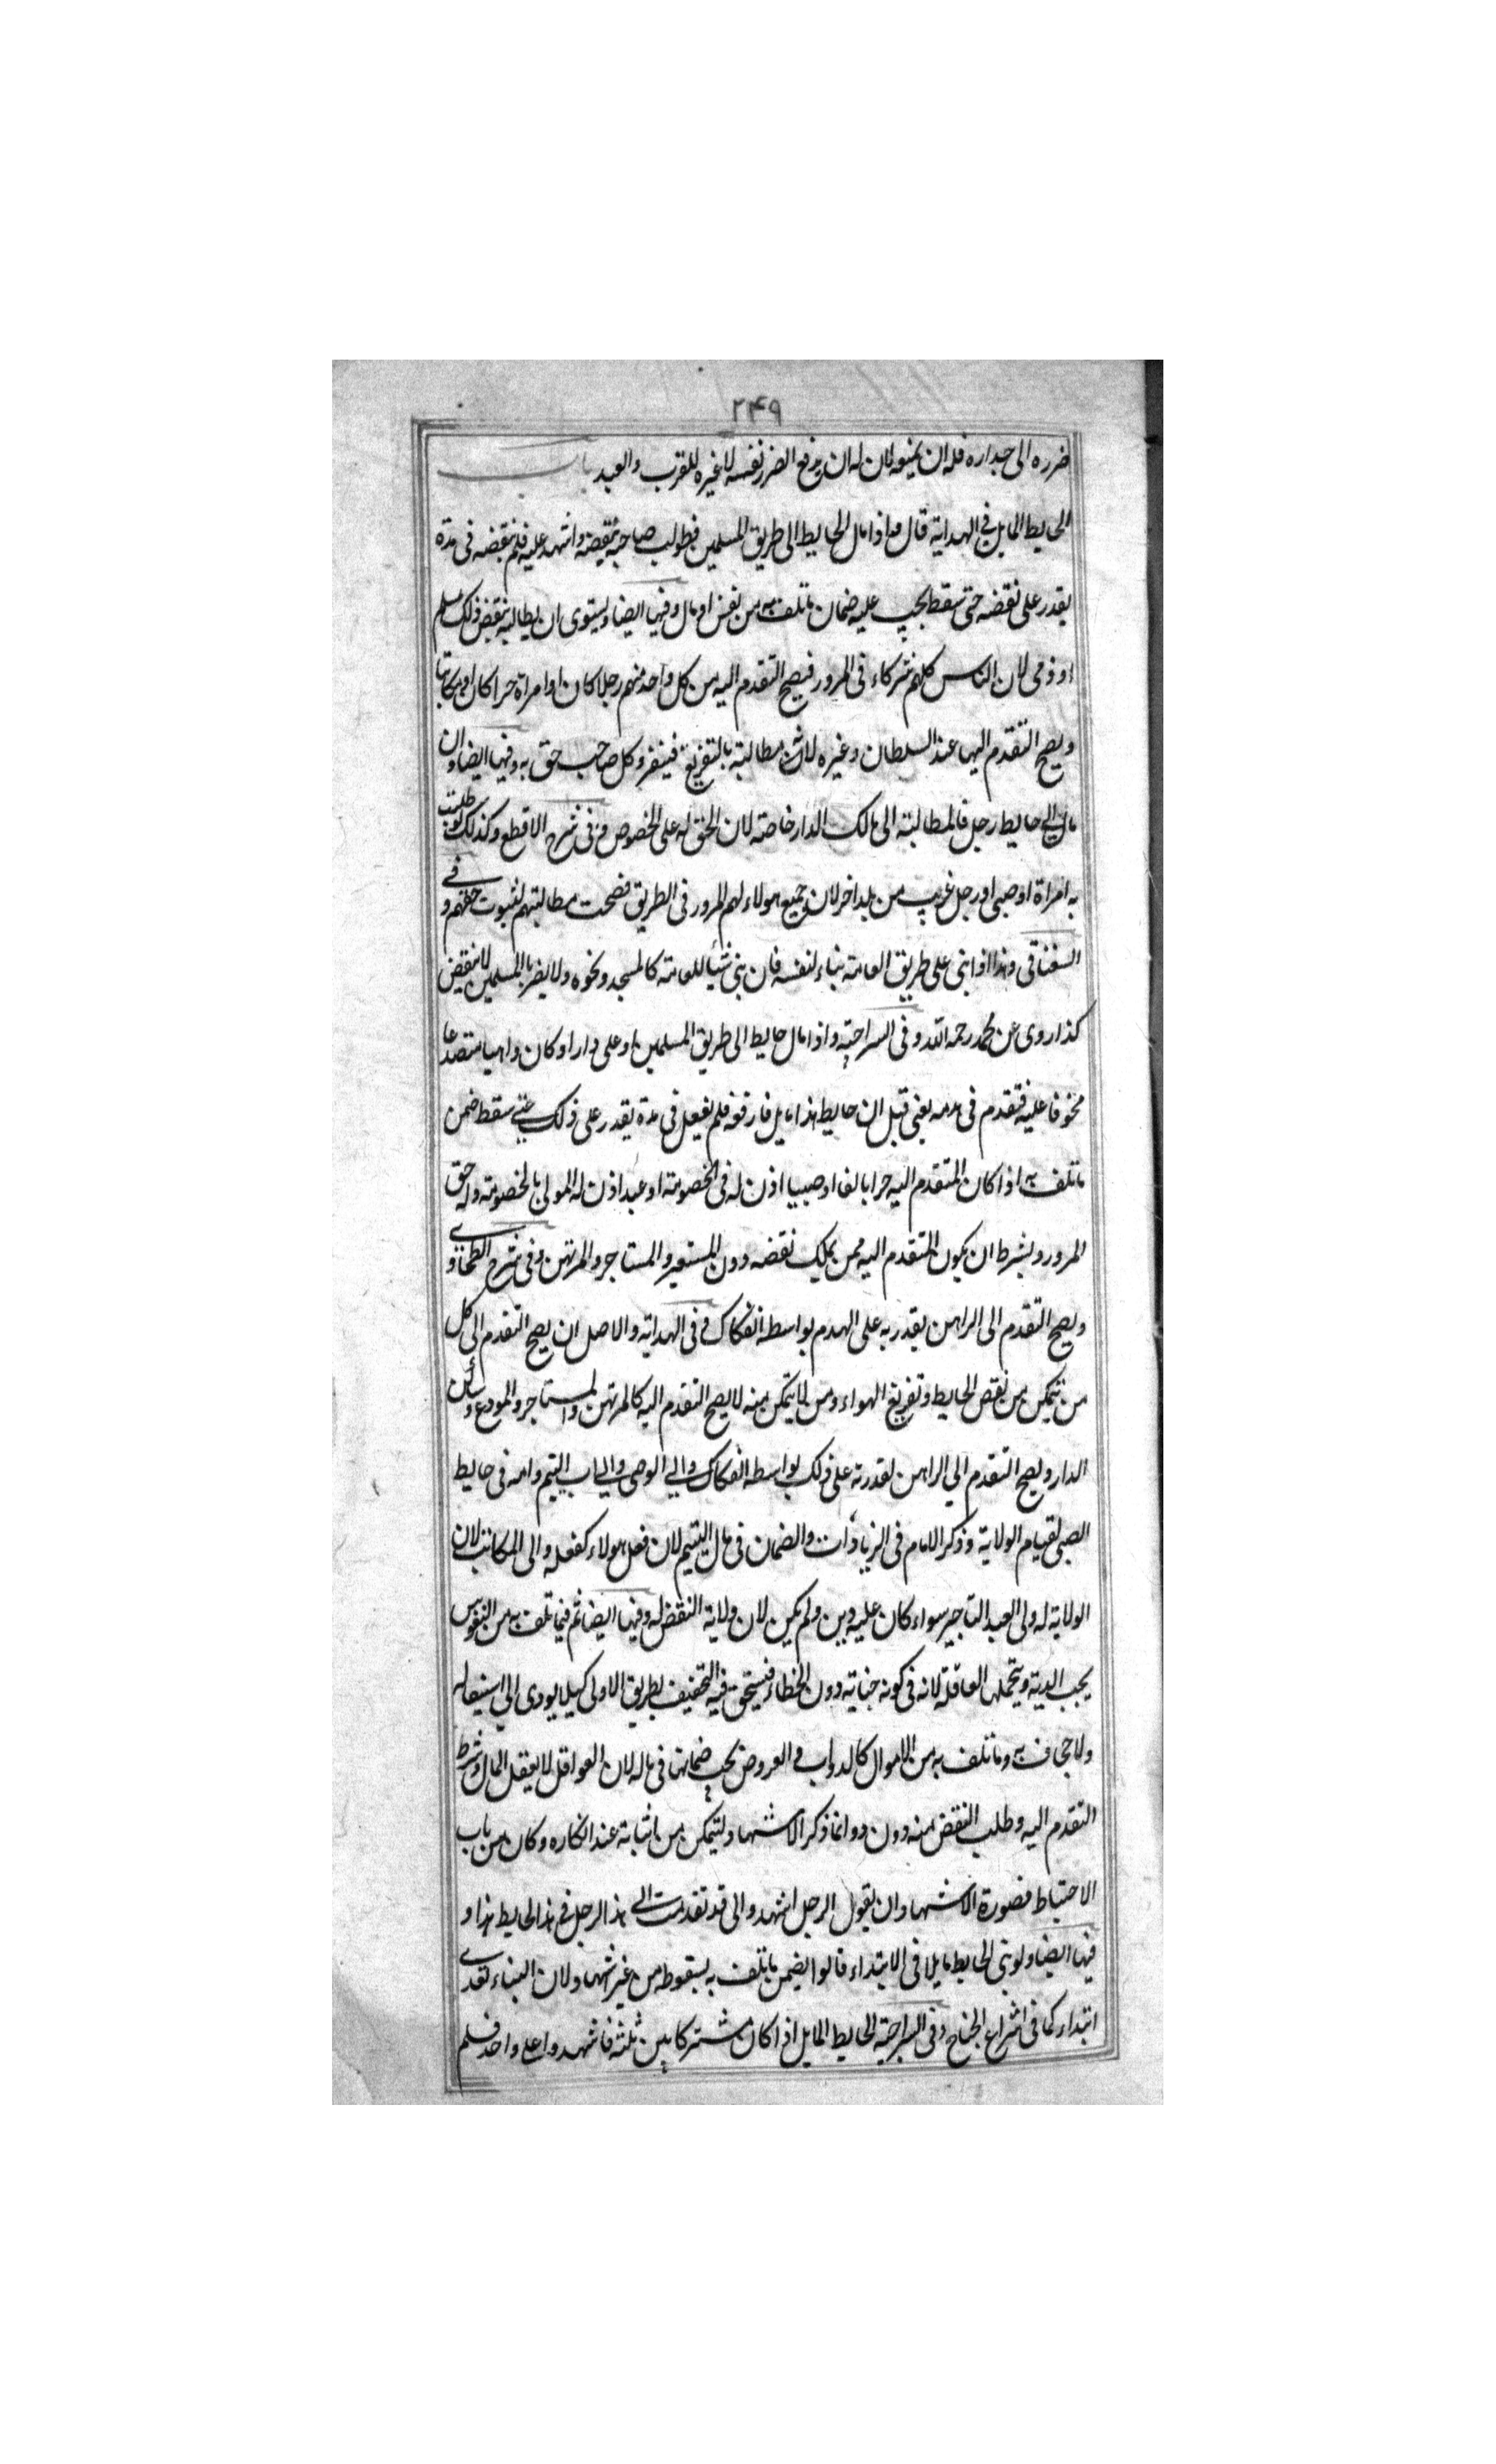 ۲۴۹
ضرره الى جداره فله ان يمنعه لان له ان يدفع الضرر نفسه لا غيره للقرب والبعد باب
الحايط المايل في الهداية قال واذا مال الحايط الى طريق المسلمين فطولب صاحبه بنقضه واشهد عليه فلم ينقضه فى مدة
يقدر على نقضه حتى سقط يجب عليه ضمان ما تلف به من نفس او مال وفيها ايضا ويستوى ان يطالبه بنقض ذلك مسلم
او ذمى لان الناس كلهم شركاء فى المرور فيصح التقدم اليه من كل واحد منهم رجلا كان او امراة حرا كان او مكاتبا
ويصح التقدم اليها عند السلطان وغيره لانه مطالبة بالتفريغ فينفرد كل صاحب حق به وفيها ايضا وان
مال الى حايط رجل فالمطالبة الى مالك الدار خاصة لان الحق له على الخصوص وفى شرح الاقطع وكذلك لو طلبت
به امراة او صبى او رجل غريب من بلد اخر لان جميع هولاء لهم المرور فى الطريق فصحت مطالبتهم لثبوت حقهم وفي
السغناقى وهذا اذا بنى على طريق العامة بناء لنفسه فان بنى شيئا للعامة كالمسجد ونحوه ولا يضر بالمسلمين لا ينقض
كذا روى عن محمد رحمه الله وفى السراجية واذا مال حايط الى طريق المسلمين او على دار او كان واهيا متصدعا
مخوفا عليه فتقدم فى هدمه يعنى قيل ان حايط هذا مايل فارفعه فلم يفعل فى مدة يقدر على ذلك حتى سقط ضمن
ما تلف به اذا كان المتقدم اليه حرا بالغا او صبيا اذن له فى الخصومة او عبدا اذن له المولى بالخصومة وله حق
المرور ويشرط ان يكون المتقدم اليه ممن يملك نقضه دون المستعير والمستاجر والمرتهن وفى شرح الطحاوى
ويصح التقدم الى الراهن يقدر به على الهدم بواسطة انفكاك وفى الهداية والاصل ان يصح التقدم الى كل
من يتمكن من نقض الحايط وتفريغ الهواء ومن لا يتمكن منه لا يصح التقدم اليه كالمرتهن والمستاجر والمودع وساكن
الدار ويصح التقدم الى الراهن لقدرته على ذلك بواسطة انفكاك والى الوصى والى اب اليتيم وامه فى حايط
الصبى لقيام الولاية وذكر الامام فى الزيادات والضمان فى مال اليتيم لان فعل هولاء كفعله والى المكاتب لان
الولاية له ولى العبد التاجر سواء كان عليه دين ولم يكن لان ولاية النقض له وفيها ايضا ثم فيما تلف به من النفوس
يجب الدية ويتحملها العاقلة لانه فى كونه جناية دون الخطاء فيستحق فيه التخفيف بطريق الاولى كيلا يودى الى استيصاله
ولاجحاف به وما تلف به من الاموال كالدواب والعروض يجب ضمانها فى ماله لان العواقل لا يعقل المال وشرط
التقدم اليه وطلب النقض منه دون دو انما ذكر الاشهاد ليتمكن من اثباته عند انكاره وكان من باب
الاحتياط فصورة الاشهاد ان يقول الرجل اشهدو الى قد تقدمت الى هذا الرجل فى هذا الحايط هذا و
فيها ايضا ولو بنى الحايط مايلا فى الابتداء قالوا يضمن ما تلف به بسقوطه من غير اشهاد لان البناء تعدى
ابتداء كما فى اشراع الجناح وفى السراجية الحايط المايل اذا كان مشتركا بين ثلثة فاشهدوا على واحد فلم